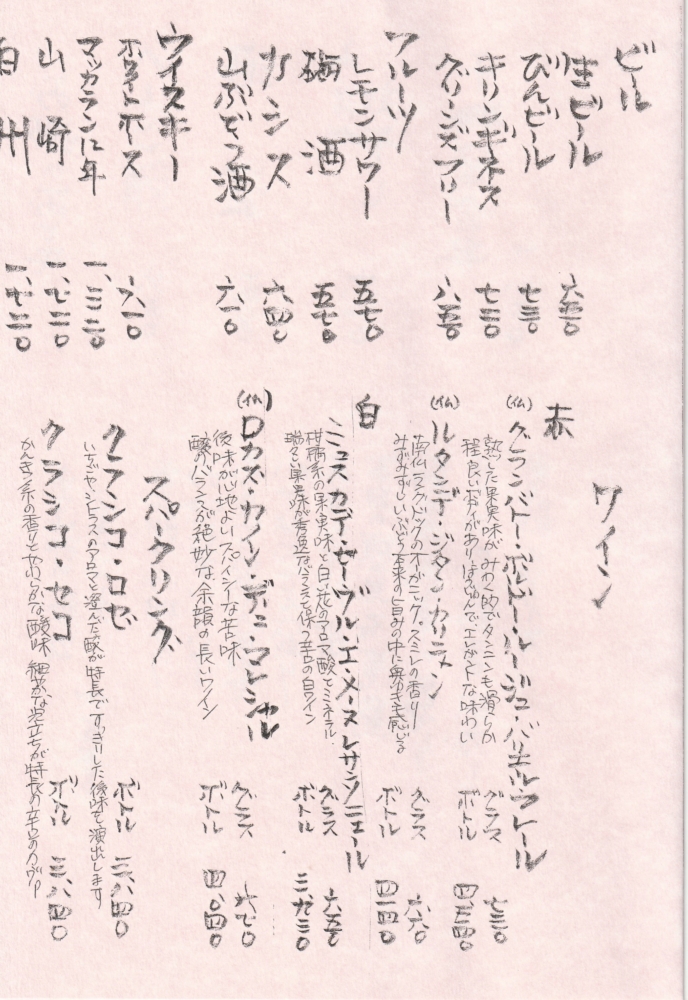 ビール
生ビール 六五〇
びんビール 七三〇
キリンギネス 七三〇
グリーンズフリー 六五〇
フルーツ
レモンサワー 五七〇
梅酒 五七〇
カシス 六四〇
山ぶどう酒 六一〇
ウイスキー
ホワイトホース 六一〇
マッカラン12年 一、三二〇
山崎 一、七二〇
白州 一、七二〇
ワイン
赤
(仏) グランバトー・ボルドー・ルージュ・バリエル・フレール
熟した果実味がみつ的でタンニンも滑らか
程良い香りがありほろ苦んで、エレガントな味わい
グラス 七三〇
ボトル 四、三四〇
(仏) ルタンデ・ジタン・カリニャン
南仏ラングドックのオーガニック。スミレの香り
みずみずしいぶどう本来の旨みの中に奥ゆきを感じる
グラス 六六〇
ボトル 四、一四〇
白
ミュスカデ・セーヴル・エ・メーヌ レザランニェール
柑橘系の果実味と白い花のアロマ 酸とミネラル
瑞々しい果実味が秀逸なバランスを保つ辛口の白ワイン
グラス 六五〇
ボトル 三、九三〇
(仏) ロカス・カイノ・デュ・マレシャル
後味が心地よいスパイシーな苦味
酸のバランスが絶妙な余韻の長いワイン
グラス 六七〇
ボトル 四、〇四〇
スパークリング
クラシコ・ロゼ
いちごやシトラスのアロマと澄んだ酸が特長です。すっきりした後味を演出します
ボトル 三、八四〇
クラシコ・セコ
かんきつ系の香りとやわらかな酸味 細やかな泡立ちが特長の辛口のカヴァ
ボトル 三、八四〇